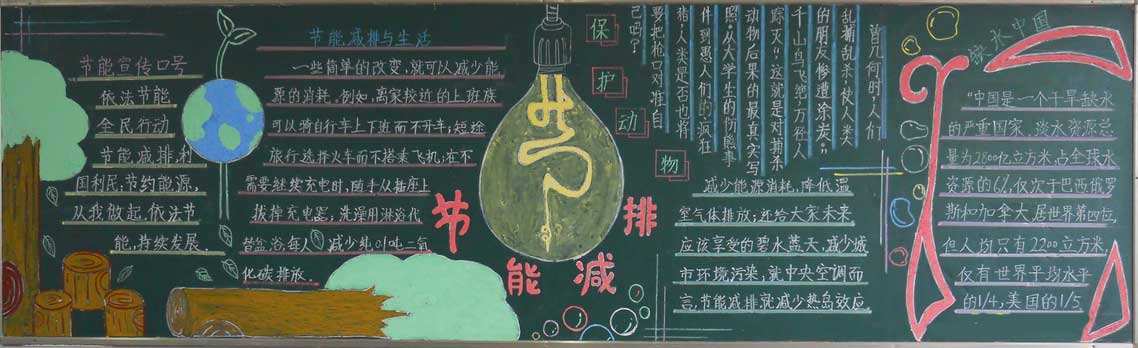 节能宣传口号
依法节能
全民行动
节能减排,利
国利民;节约能源,
从我做起,依法节
能,持续发展.
节能减排与生活
一些简单的改变,就可以减少能
源的消耗。例如,离家较近的上班族
可以骑自行车上下班而不开车;短途
旅行选择火车而不搭乘飞机;在不
需要继续充电时,随手从插座上
拔掉充电器;洗澡用淋浴代
替盆浴每人 减少 二氧
化碳排放.
节能减排
保护动物
曾几何时,人们
乱捕乱杀,使人类
的朋友惨遭涂炭。“
千山鸟飞绝,万径人
踪灭”,这就是对捕杀
动物后果的最真实写
照。从大学生的伤熊事
件到愚人们的疯狂
猎 人类是否也将
要把枪口对准自
己吗?
减少能源消耗,降低温
室气体排放;还给大家未来
应该享受的碧水蓝天,减少城
市环境污染;就中央空调而
言,节能减排就减少热岛效应.
水中国
“中国是一个干旱缺水
的严重国家。淡水资源总
量为2800亿立方米,占全球水
资源的6%,仅次于巴西俄罗
斯和加拿大,居世界第四位,
但人均只有2200立方米,
仅有世界平均水平
的1/4,美国的1/5